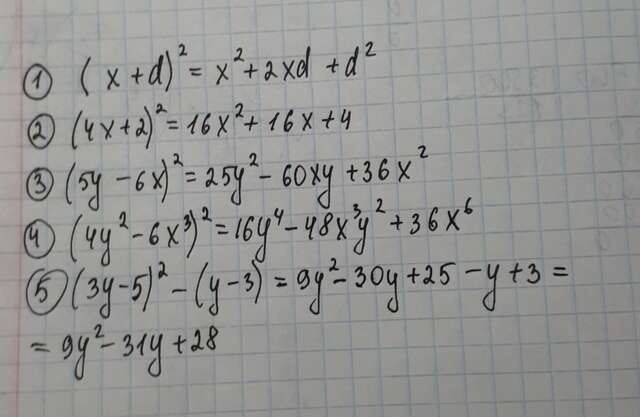 ① (x+d)² = x²+2xd+d²
② (4x+2)² = 16x²+16x+4
③ (5y-6x)² = 25y²-60xy+36x²
④ (4y²-6x³)² = 16y⁴-48x³y²+36x⁶
⑤ (3y-5)²-(y-3) = 9y²-30y+25-y+3 =
= 9y²-31y+28